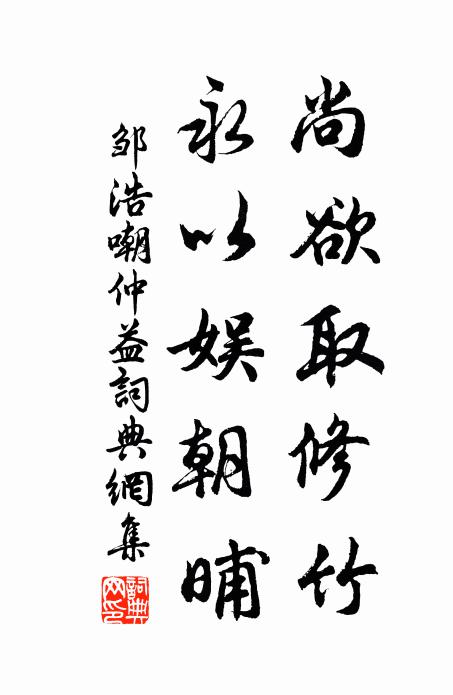 尚欲取修竹
永以娱朝晡
邹浩嘲仲益詞典網集
詞典